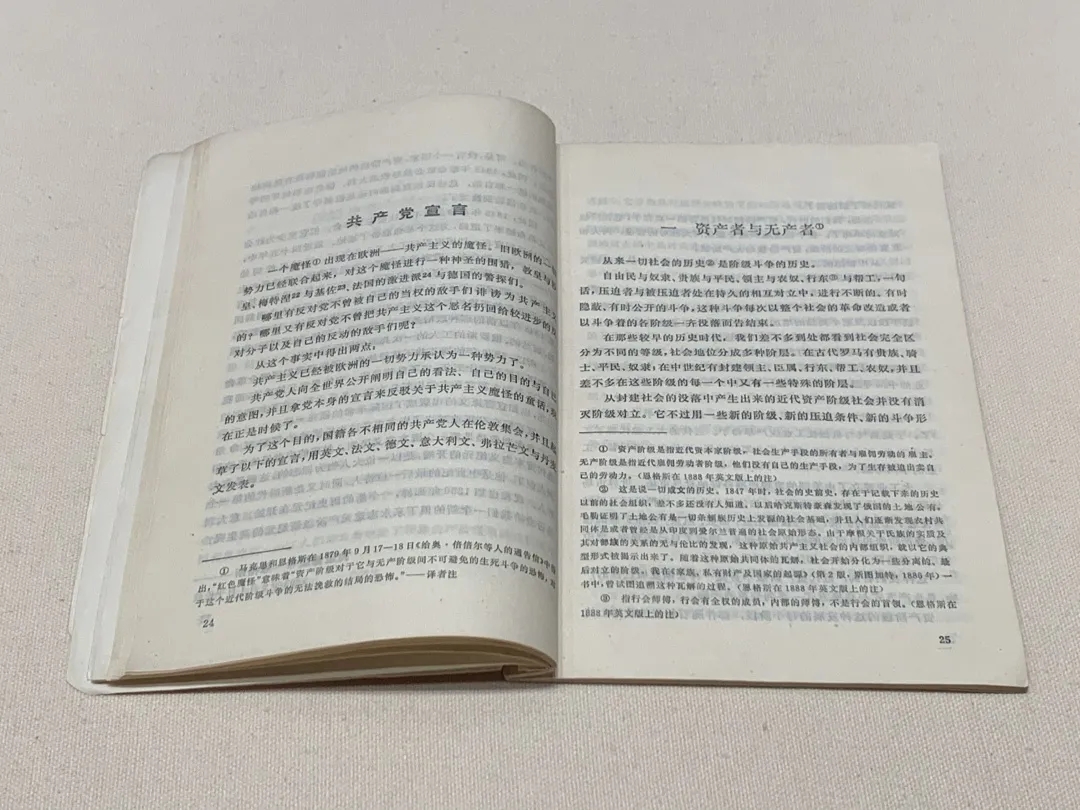 共产党宣言
一个魔怪①出现在欧洲——共产主义的魔怪。旧欧洲的一切
势力已经联合起来，对这个魔怪进行一种神圣的围猎，教皇与
皇、梅特涅²²与基佐²³、法国的激进派²⁴与德国的警探们。
哪里有反对党不曾被自己的当权的敌手们诽谤为共产主义
的？哪里又有反对党不曾把共产主义这个恶名扔回给较进步的反
对分子以及自己的反动的敌手们呢？
从这个事实中得出两点。
共产主义已经被欧洲的一切势力承认为一种势力了。
共产党人向全世界公开阐明自己的看法、自己的目的与自己
的意图，并且拿党本身的宣言来反驳关于共产主义魔怪的童话，
在正是时候了。
为了这个目的，国籍各不相同的共产党人在伦敦集会，并且起
草了以下的宣言，用英文、法文、德文、意大利文、弗拉芒文与丹麦
文发表。
① 马克思和恩格斯在1879年9月17—18日《给奥·倍倍尔等人的通告信》中
出，“红色魔怪”意味着“资产阶级对于它与无产阶级间不可避免的生死斗争的恐怖，对
于这个近代阶级斗争的无法挽救的结局的恐怖。”——译者注
24
一 资产者与无产者①
从来一切社会的历史②是阶级斗争的历史。
自由民与奴隶、贵族与平民、领主与农奴、行东③与帮工，一句
话，压迫者与被压迫者处在持久的相互对立中，进行不断的、有时
隐蔽、有时公开的斗争，这种斗争每次以整个社会的革命改造或者
以斗争着的各阶级一齐没落而告结束。
在那些较早的历史时代，我们差不多到处都看到社会完全区
分为不同的等级，社会地位分成多种阶层。在古代罗马有贵族、骑
士、平民、奴隶，在中世纪有封建领主、臣属、行东、帮工、农奴，并且
差不多在这些阶级的每一个中又有一些特殊的阶层。
从封建社会的没落中产生出来的近代资产阶级社会并没有消
灭阶级对立。它不过用一些新的阶级、新的压迫条件、新的斗争形
① 资产阶级是指近代资本家阶级，社会生产手段的所有者与雇佣劳动的雇主。
无产阶级是指近代雇佣劳动者阶级，他们没有自己的生产手段，为了生存被迫出卖自
己的劳动力。（恩格斯在1888年英文版上的注）
② 这是说一切成文的历史。1847年时，社会的史前史，存在于记载下来的历史
以前的社会组织，差不多还没有人知道。以后哈克斯特豪森发现了俄国的土地公有，
毛勒证明了土地公有是一切条顿族历史上发源的社会基础，并且人们逐渐发现农村共
同体是或者曾经是从印度到爱尔兰普遍的社会原始形态。由于摩根关于氏族的实质及
其对部族的关系的无与伦比的发现，这种原始共产主义社会的内部组织，就以它的典
型形式被揭示出来了。随着这种原始共同体的瓦解，社会开始分化为一些分离的、最
后对立的阶级。我在《家族、私有财产及国家的起源》（第2版，斯图加特，1886年）一
书中，曾试图追溯这种瓦解的过程。（恩格斯在1888年英文版上的注）
③ 指行会师傅，行会有全权的成员，内部的师傅，不是行会的首领。（恩格斯在
1888年英文版上的注）
25